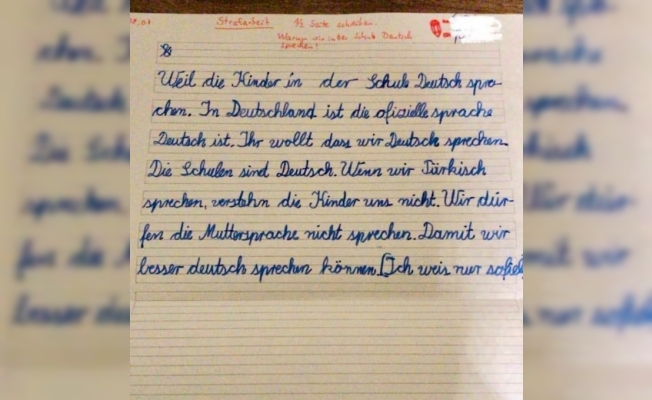 Strafarbeit 1/2 Seite schreiben.
Warum wir in der Schule Deutsch
sprechen!
Weil die Kinder in der Schule Deutsch spre-
chen. In Deutschland ist die ofizielle sprache
Deutsch ist. Ihr wollt dass wir Deutsch sprechen.
Die Schulen sind Deutsch. Wenn wir Türkisch
sprechen, verstehn die Kinder uns nicht. Wir dür-
fen die Muttersprache nicht sprechen. Damit wir
besser deutsch sprechen können. [Ich weis nur sofiel